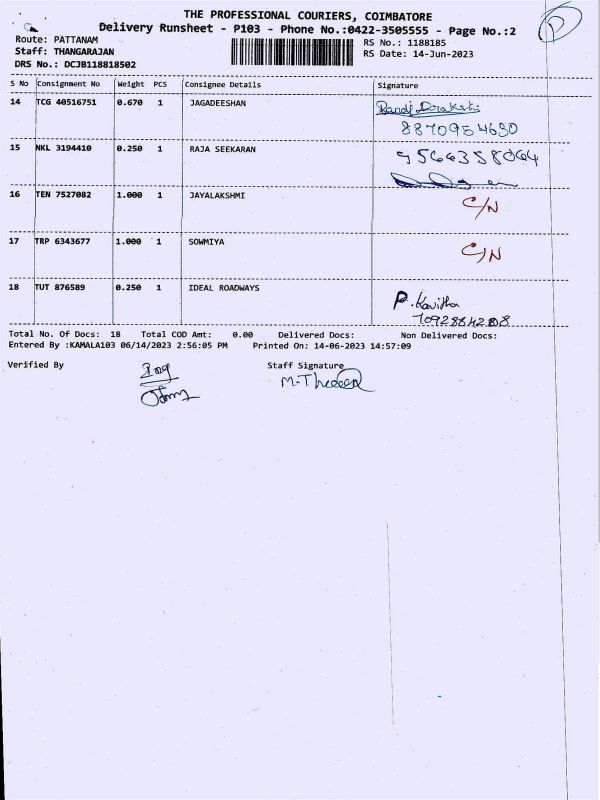 THE PROFESSIONAL COURIERS, COIMBATORE
Delivery Runsheet - P103 - Phone No.:0422-3505555 - Page No.:2
Route: PATTANAM
RS No.: 1188185
Staff: THANGARAJAN
RS Date: 14-Jun-2023
DRS No.: DCJB118818502
S No Consignment No Weight PCS Consignee Details Signature
14 TCG 40516751 0.670 1 JAGADEESHAN
8870954690
15 NKL 3194410 0.250 1 RAJA SEEKARAN
9566358064
16 TEN 7527082 1.000 1 JAYALAKSHMI C/N
17 TRP 6343677 1.000 1 SOWMIYA C/N
18 TUT 876589 0.250 1 IDEAL ROADWAYS
P. Kavitha
Total No. Of Docs: 18 Total COD Amt: 0.00 Delivered Docs: Non Delivered Docs:
Entered By :KAMALA103 06/14/2023 2:56:05 PM Printed On: 14-06-2023 14:57:09
Verified By Staff Signature